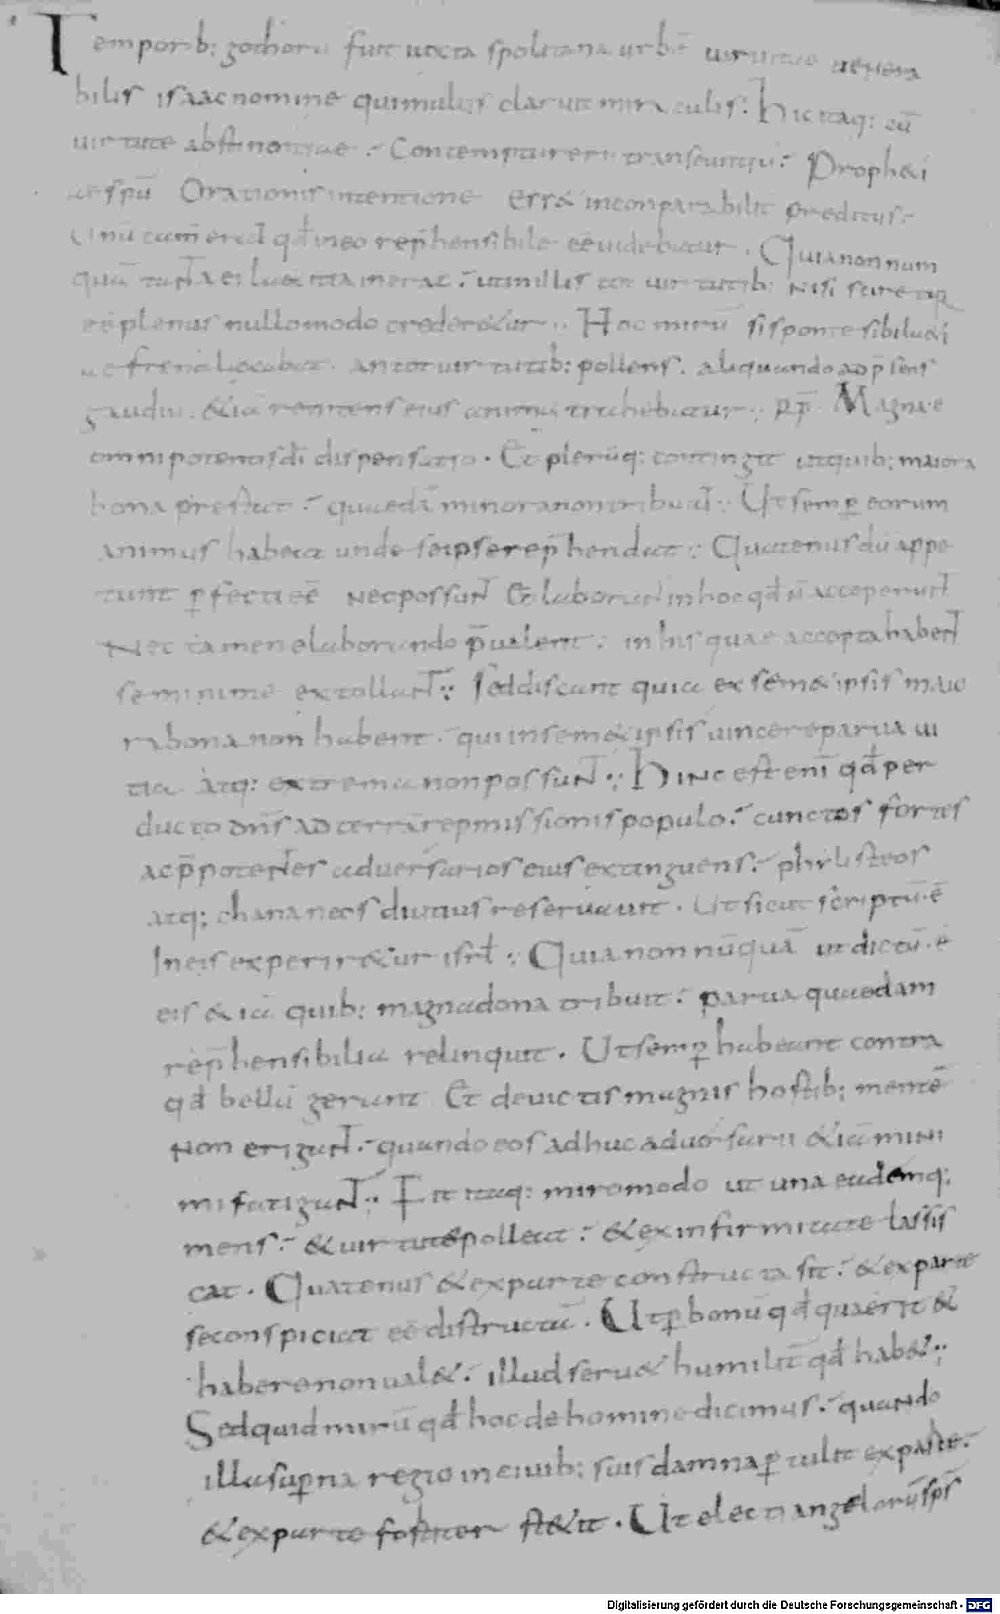 Temporib; gothorū fuit iuxta spolitana urbē vir vitae venera
bilis isaac nomine qui multis claruit miraculis. Hic itaq; cū
virtute abstinentiae. Contemptu rerū transeuntiū. Prophetiae
spū Orationis intentione esset inconparabilit preditus.
Unū tam erat qd in eo reprhensibile eē videbatur. Quia non num
quā tanta ei laetitia inerat. ut in illis tot virtutib; nisi sciretur
eē plenus nullo modo crederetur. Hoc mirū si sponte sibi laeti
tiae frena laxabat. an tot virtutib; pollens. aliquando ad p̄sens
gaudiū. etiā renitens eius animus trahebatur. Magna ē
omnipotentis dī dispensatio. Et plerūq; contingit ut quib; maiora
bona prestat. quaedā minora non tribuat. Ut semp eorum
animus habeat unde se ipse rep̄hendat. Quatenus dū appe
tunt pfecti eē nec possunt Et laborant in hoc qd n̄ acceperunt
Nec tamen elaborando p̄ualent. in his quae accepta habent
se minime extollant. Sed discant quia ex semet ipsis maio
ra bona non habent. qui in semet ipsis vincere parua ui
tia. atq; extrema non possunt. Hinc est enī qd per
ducto dn̄s ad terrā repmissionis populo. cunctos fortes
ac p̄potentes aduersarios eius extinguens. philisteos
atq; chananeos diutius reseruauit. Ut sicut scriptū ē
In eis experiretur isrl. Quia non nūquā ut dictū ē
eis etiā quib; magna dona tribuit. parua quaedam
rep̄hensibilia relinquit. Ut semp habeant contra
qd bellū gerant Et deuictis magnis hostib; mentē
non erigant. quando eos adhuc aduersarii etiā mini
mi fatigant. Fit itaq; miro modo ut una eademq;
mens. et uirtute polleat. et ex infirmitate lassis
cat. Quatenus et ex parte constructa sit. et ex parte
se conspiciat eē distructā. Ut p bonū qd quaerit et
habere non ualet. illud seruet humilit qd habet.
Sed quid mirū qd hoc de homine dicimus. quando
illa supna regio in ciuib; suis damna ptulit ex parte.
et ex parte fortiter stetit. Ut electi angelorū sps
Digitalisierung gefördert durch die Deutsche Forschungsgemeinschaft - DFG